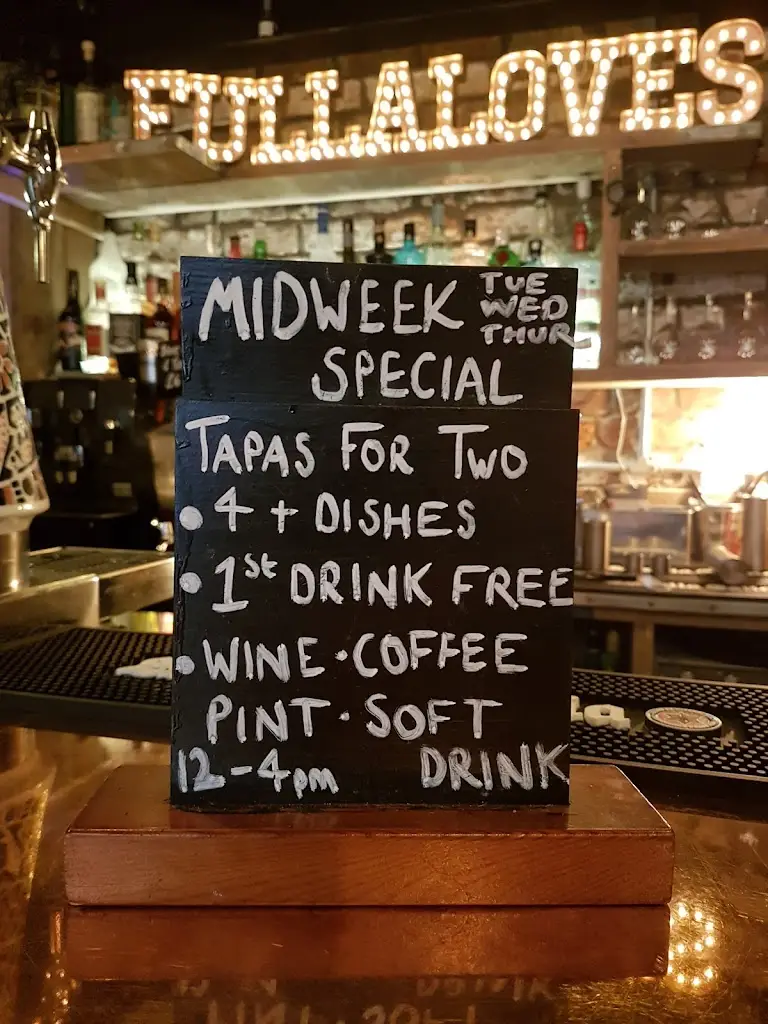 FULLALOVES
MIDWEEK TUE
WED
THUR
SPECIAL
TAPAS FOR TWO
• 4 + DISHES
• 1st DRINK FREE
• WINE · COFFEE
PINT · SOFT
12-4pm DRINK